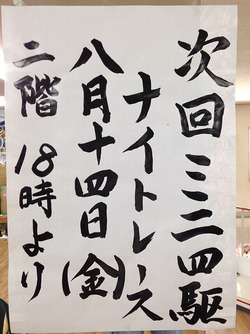 次回ミニ四駆
ナイトレース
八月十四日(金)
二階 18時より